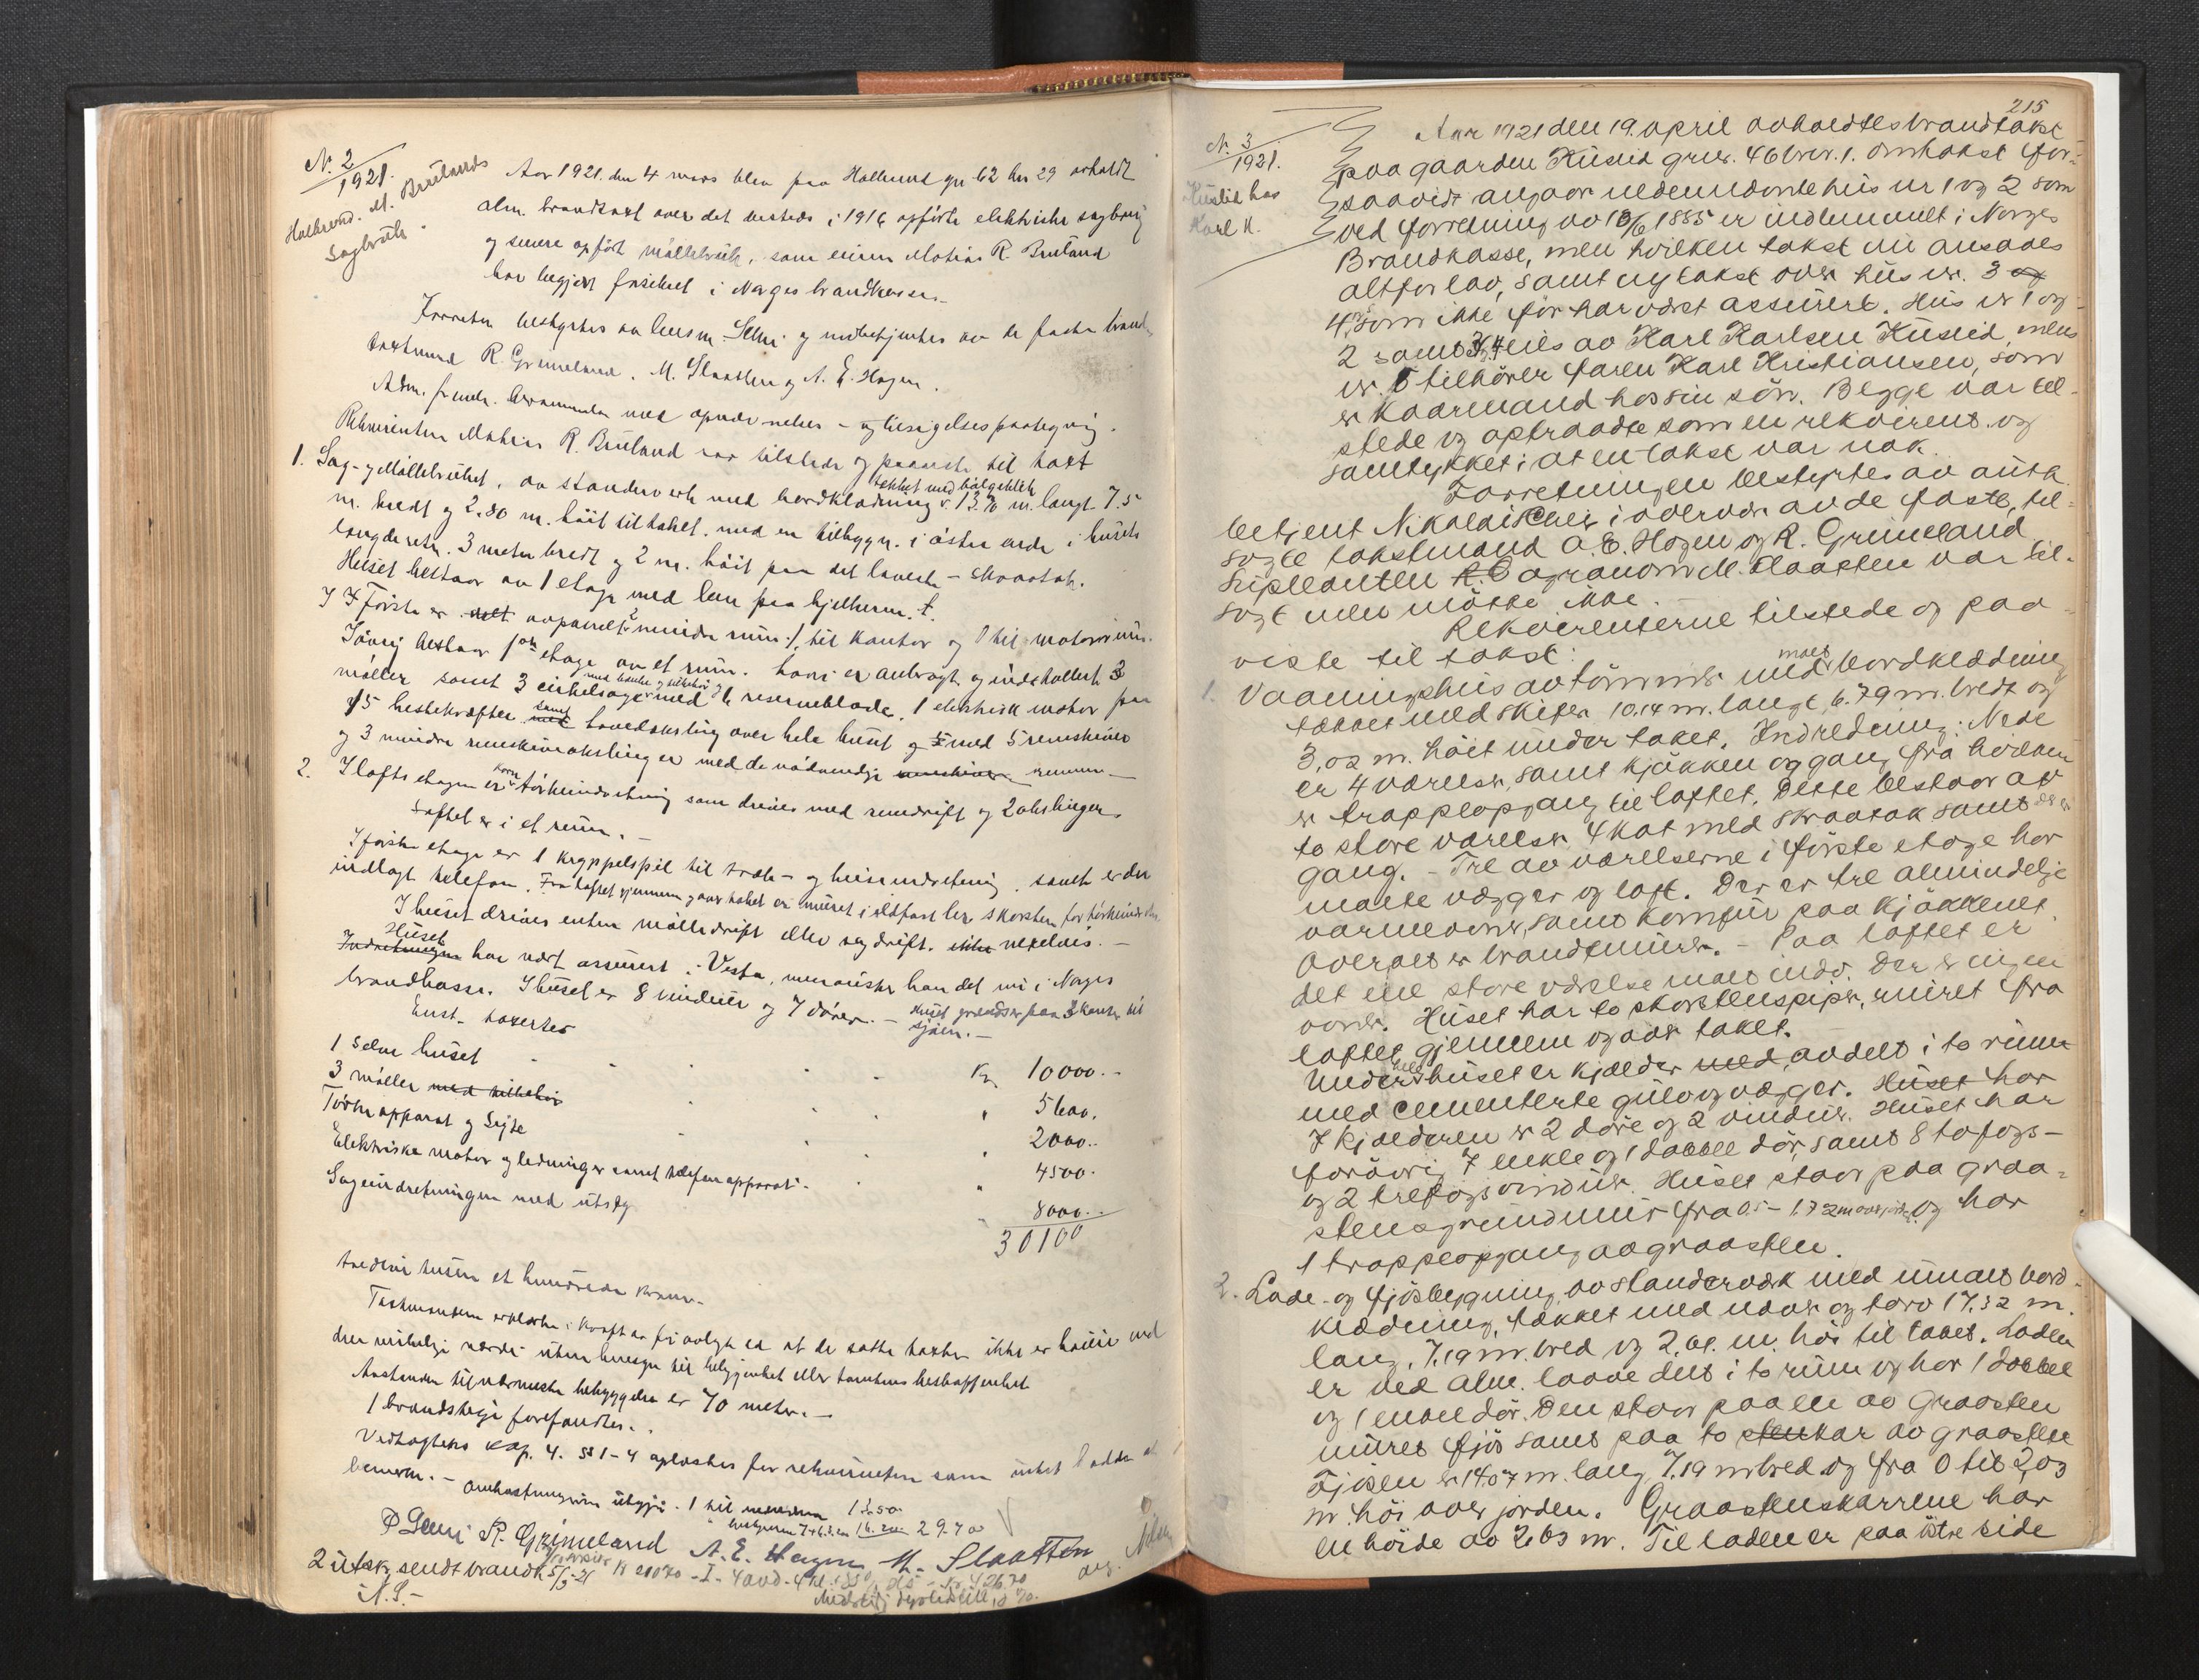 N. 2
1921.
Halkesund. M. Brulands
Sagbruk.
Aar 1921. den 4 mars blev paa Hallesund gn 62 bn 29 avholdt
alm. brandtaxt over det vesteds i 1916 opførte elektriske sagbruk
og senere opført møllebruk, som eieren Mathias R. Bruland
har begjært forsikret i Norges brandkasse.
Forretn. bestyrtes av lensm. Lem og medbetjentes av de faste brand-
taxtmænd R. Grimeland. M. Slaatten og A. E. Hagen.
Adm. fremla. med opnævnelses- og tilsigelsespaategning.
Rekvirenten Mathias R. Bruland var tilstede og paaviste til taxt
1. Sag- og Møllebruket, av standerverk med bordklædning tekket med bølgeblik 13.70 m. langt 7.5
m. bredt og 2.80 m. høit til taket. med en tilbygn. i østre ende i husets
længderetn. 3 meter bredt og 2 m. høit paa det laveste - skraatak.
Huset bestaar av 1 etage med lem paa hjelkerne.
I første er avpanelt 2 mindre rum:/: til kontor og til motorrum.
Iøvrig bestaar 1ste etage av et rum. heri er anbragt og indeholdt 3
møller samt 3 cirkelsager med 4 reserveblade. 1 elektrisk motor paa
15 hestekræfter samt hovedaksling over hele huset og med 5 remskiver
og 3 mindre remskiveakslinger med de nødvendige remmer.
2. I lofts etagen er korn tørkeindretning som drives med remdrift og 2 akslinger
Loftet er i et rum.
I første etage er 1 kryppelspil til træk- og heiseindretning, samt er der
indlagt telefon. Fra loftet gjennem og over taket er muret i ildfast ler skorsten for tørkeindretn.
I huset drives enten mølledrift eller sagdrift. vekselvis.
Huset har vært assurert i Vesta, men ønsker han det nu i Norges
brandkasse. I huset er 8 vinduer og 7 dører. - Huset grændser paa 3 kanter til
sjøen.
Enst. taxertes
1 Selve huset Kr. 10000.-
3 møller med tilbehør " 5600.
Tørke apparat og Sigte " 2000.-
Elektriske motor og ledninger samt telefonapparat " 4500.
Sagindretningen med utstyr " 8000.-
30100
tredive tusen et hundrede kroner.
Taxtmændene erklærte i kraft av foravlagt ed at de satte taxter ikke er høiere end
den virkelige værdi uten hensyn til beliggenhet eller tomtens beskaffenhet
Avstanden til nærmeste bebyggelse er 70 meter.
1 brandstige forefandtes.
Vedtægtens kap. 4. §§ 1-4 oplæstes for rekvirenten som intet hadde at
bemerke. - Omkostningerne utgjør. 1 til mændene 13.50
bestyreren 7+6.20 16.20 29.70
P Lem R. Grimeland A. E. Hagen M. Slaatten
2 utskr. sendt brandk. 5/3-21
N.S.-
215
N. 3
1921.
Kusslid hos
Karl K.
Aar 1921 den 19. april avholdtes brandtakst
paa gaarden Kuslid grnr. 46 brnr. 1. Omtakst for-
saavidt angaar nedennævnte hus nr 1 og 2 som
ved forretning av 18/6 1885 er indlemmet i Norges
Brandkasse, men hvilken takst nu ansaaes
altfor lav, samt ny takst over hus nr. 3 og
4 som ikke før har været assurert. Hus nr 1 og
2 samt 3, 4 eies av Karl Karlsen Kuslid, mens
nr. 5 tilhører faren Karl Kristiansen, som
er kaarmand hos sin søn. Begge var til-
stede og optraadte som en rekvirent og
samtykket i at en takst var nok.
Forretningen bestyrtes av auth.
betjent Nikolaischen i overvær av de faste, til-
sagte takstmænd A. E. Hagen og R. Grimeland.
Supleanten agronom M. Slaatten var til-
sagt men møtte ikke.
Rekvirenterne tilstede og paa-
viste til takst:
1. Vaaningshus av tømmer med malt bordklædning
tækket med skifer 10.14 m. langt, 6.79 m. bredt og
3,02 m. høit under taket. Indredning: Nede
er 4 værelser, samt kjøkken og gang, fra hvilken
er trappeopgang til loftet. Dette bestaar av
to store værelser, 4 kot med skraatak samt
gang. - Tre av værelserne i første etage har
malte vægger og loft. Der er tre almindelige
varmeovner, samt komfur paa kjøkkenet.
Overalt er brandmurer. - Paa loftet er
det ene store værelse malt indv. Der er ingen
ovner. Huset har to skorstenspiper, muret fra
loftet gjennem og over taket.
Under hele huset er kjælder med, avdelt i to rum
med cementerte gulv og vægger. Huset har
I kjælderen er 2 døre og 2 vinduer. Huset har
forøvrig 7 enkle og 1 dobbel dør, samt 8 tofags-
og 2 trefagsvinduer. Huset staar paa graa-
stensgrundmur fra 0.5 - 1.72 m over jorden og har
1 trappeopgang av graasten.
2. Lade- og fjøsbygning av standerværk med umalt bord-
klædning, tækket med næver og torv 17,32 m.
lang, 7.19 m. bred og 2,01. m. høi til taket. Laden
er ved alm. laave delt i to rum og har 1 dobbel
og 1 enkel dør. Den staar paa en av graasten
muret fjøs samt paa to stenkar av graasten
Fjøsen er 14.07 m. lang, 7.19 m bred og fra 0 til 2,03
m. høi over jorden. Graastenskarrene har
en høide av 2,03 m. Til laden er paa østre side